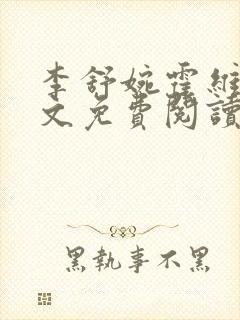 李舒婉霍維
文免費閱讀
黑執事不黑